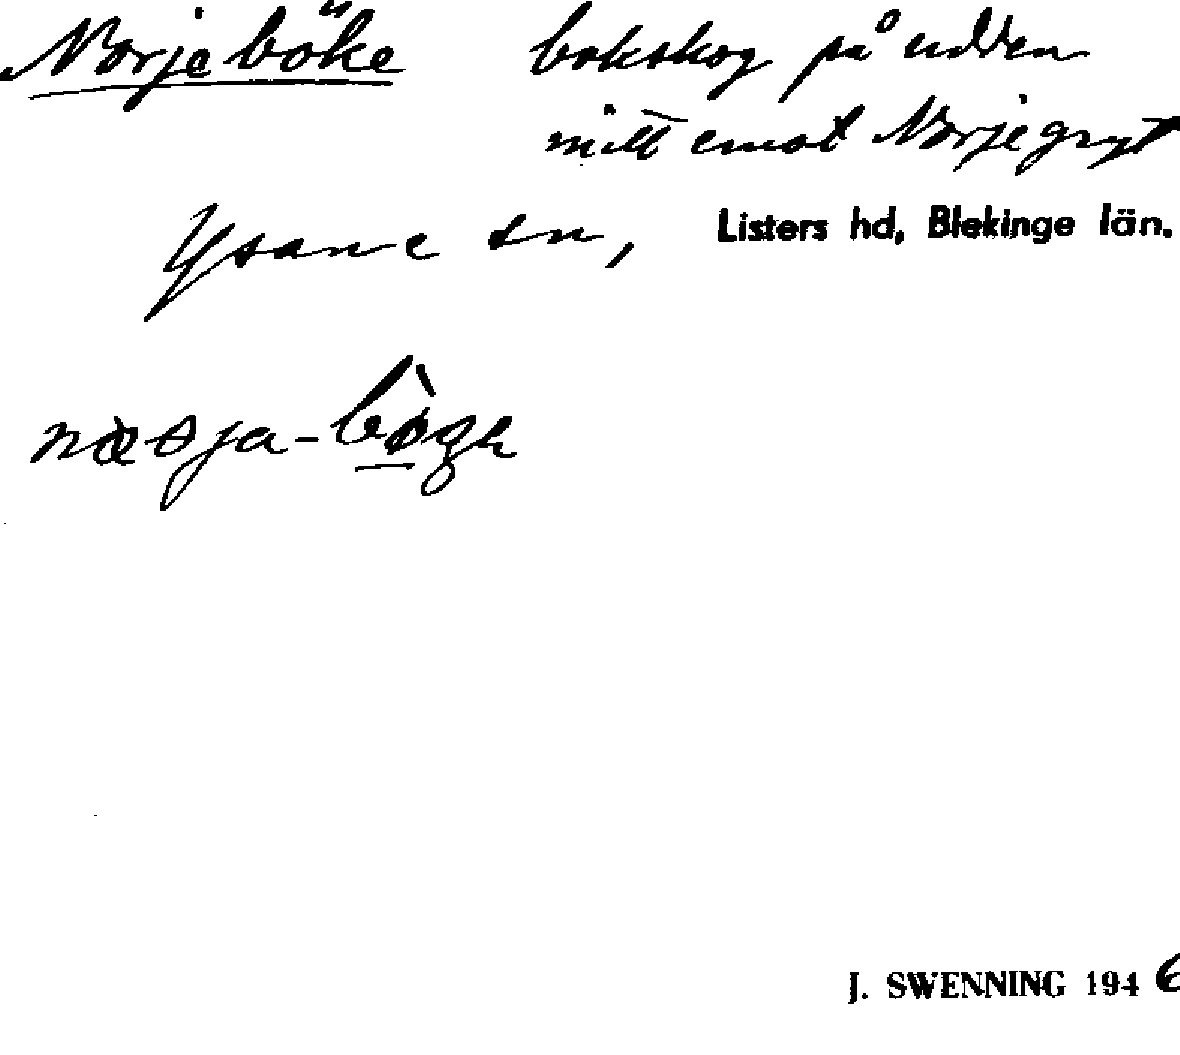 Norje böke bokskog på udden
mitt emot Norje gryt
Ysane sn, Listers hd, Blekinge län.
J. SWENNING 1946